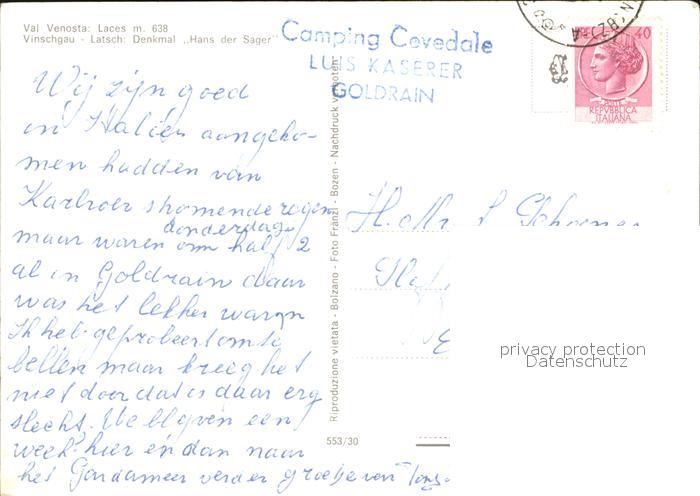 Val Venosta: Laces m. 638
Vinschgau - Latsch: Denkmal „Hans der Sager"
Camping Cevedale
LUIS KASERER
GOLDRAIN
40
REPVBBLICA
ITALIANA
Wij zijn goed
in Italië aangeko-
men hadden van
Karlsroer stromende regen
donderdag
maar waren om half 2
al in Goldrain daar
was het lekker warm
Ik heb geprobeert om te
bellen maar kreeg het
niet door dat is daar erg
slecht. We blijven een
week hier en dan naar
het Gardameer verder groetjes van
Riproduzione vietata - Bolzano - Foto Fränzl - Bozen - Nachdruck verboten
553/30
privacy protection
Datenschutz